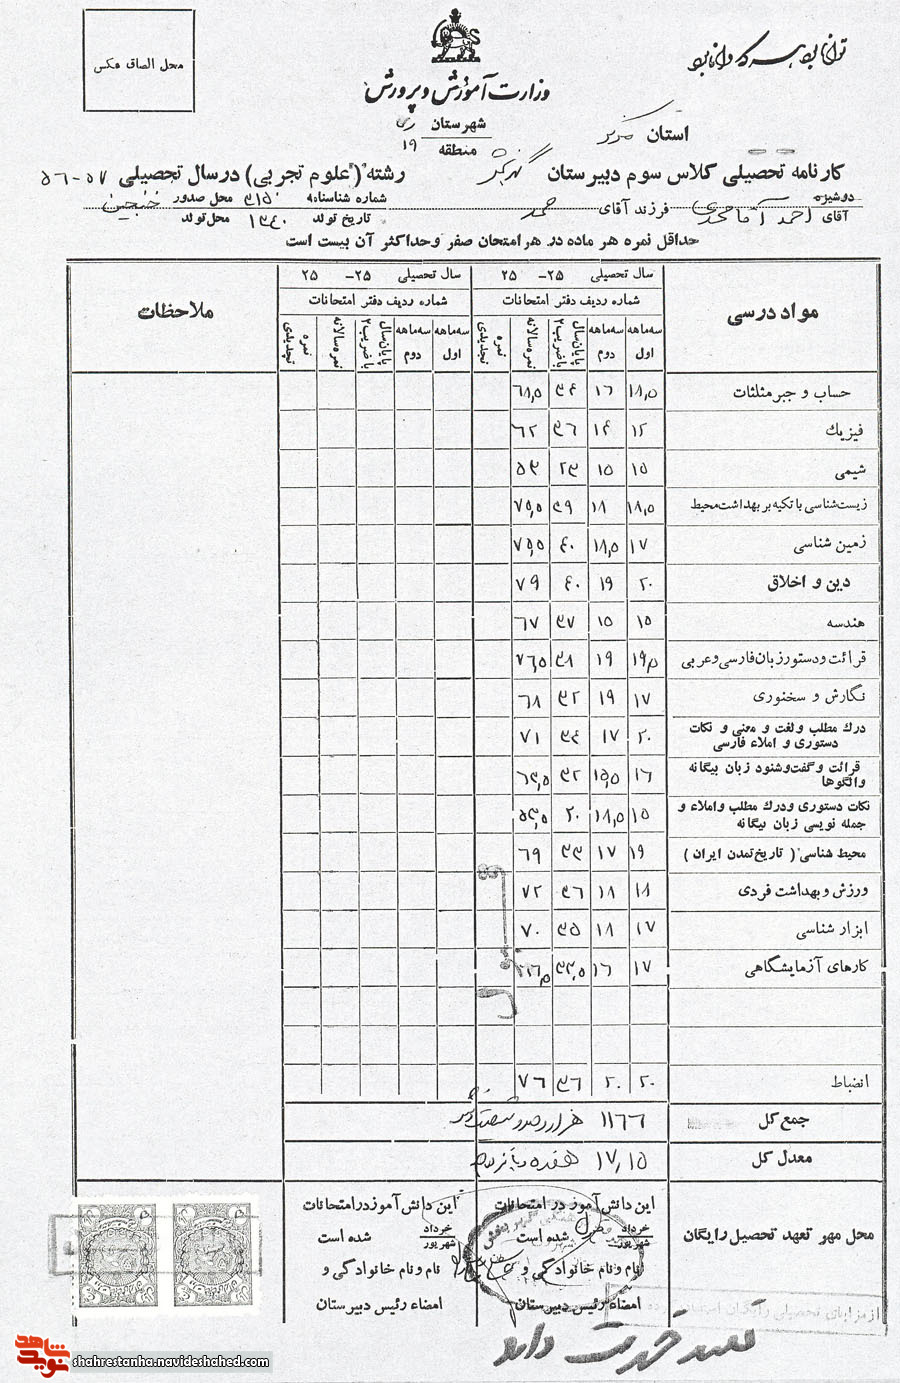 محل الصاق عکس
توانا بود هر که دانا بود
وزارت آموزش و پرورش
شهرستان ری
استان مرکز
منطقه ۱۹
کارنامه تحصیلی کلاس سوم دبیرستان رشته (علوم تجربی) در سال تحصیلی ۵۷-۵۶
دوشیزه
آقای احمد آقامحمدی فرزند آقای شماره شناسنامه ۳۱۵۰ محل صدور خنجین
تاریخ تولد ۱۳۴۰ محل تولد
حداقل نمره هر ماده در هر امتحان صفر و حداکثر آن بیست است
مواد درسی سال تحصیلی ۲۵- ۲۵ سال تحصیلی ۲۵- ۲۵ ملاحظات
شماره ردیف دفتر امتحانات شماره ردیف دفتر امتحانات
سه‌ماهه اول سه‌ماهه دوم پایان‌سال باضریب۲ نمره‌سالانه نمره تجدیدی سه‌ماهه اول سه‌ماهه دوم پایان‌سال باضریب۲ نمره‌سالانه نمره تجدیدی
حساب و جبر مثلثات ۱۸,۵ ۱۶ ۳۴ ۶۸,۵
فیزیك ۱۲ ۱۴ ۳۶ ۶۲
شیمی ۱۵ ۱۵ ۲۳ ۵۳
زیست‌شناسی با تکیه بر بهداشت محیط ۱۸,۵ ۱۸ ۳۹ ۷۵,۵
زمین شناسی ۱۷ ۱۸,۵ ۴۰ ۷۵,۵
دین و اخلاق ۲۰ ۱۹ ۴۰ ۷۹
هندسه ۱۵ ۱۵ ۳۷ ۶۷
قرائت و دستور زبان فارسی و عربی ۱۹,۵ ۱۹ ۳۸ ۷۶,۵
نگارش و سخنوری ۱۷ ۱۹ ۳۲ ۶۸
درك مطلب و لغت و معنی و نکات
دستوری و املاء فارسی ۲۰ ۱۷ ۳۴ ۷۱
قرائت و گفت‌وشنود زبان بیگانه
والگوها ۱۶ ۱۵,۵ ۳۲ ۶۳,۵
نکات دستوری و درك مطلب و املاء و
جمله نویسی زبان بیگانه ۱۵ ۱۸,۵ ۲۰ ۵۳,۵
محیط شناسی (تاریخ تمدن ایران) ۱۹ ۱۷ ۳۳ ۶۹
ورزش و بهداشت فردی ۱۸ ۱۸ ۳۶ ۷۲
ابزار شناسی ۱۷ ۱۸ ۳۵ ۷۰
کارهای آزمایشگاهی ۱۷ ۱۶ ۳۳,۵
انضباط ۲۰ ۲۰ ۳۶ ۷۶
جمع کل ۱۱۶۶ هزار و صد و شصت و شش
معدل کل ۱۷,۱۵ هفده و پانزده
محل مهر تعهد تحصیل رایگان
این دانش آموز در امتحانات این دانش آموز در امتحانات
خرداد قبول شده است خرداد شده است
شهریور شهریور
نام و نام خانوادگی و نام و نام خانوادگی و
امضاء رئیس دبیرستان امضاء رئیس دبیرستان
قبول
تعهد خدمت داید
نوید شاهد
shahrestanha.navideshahed.com